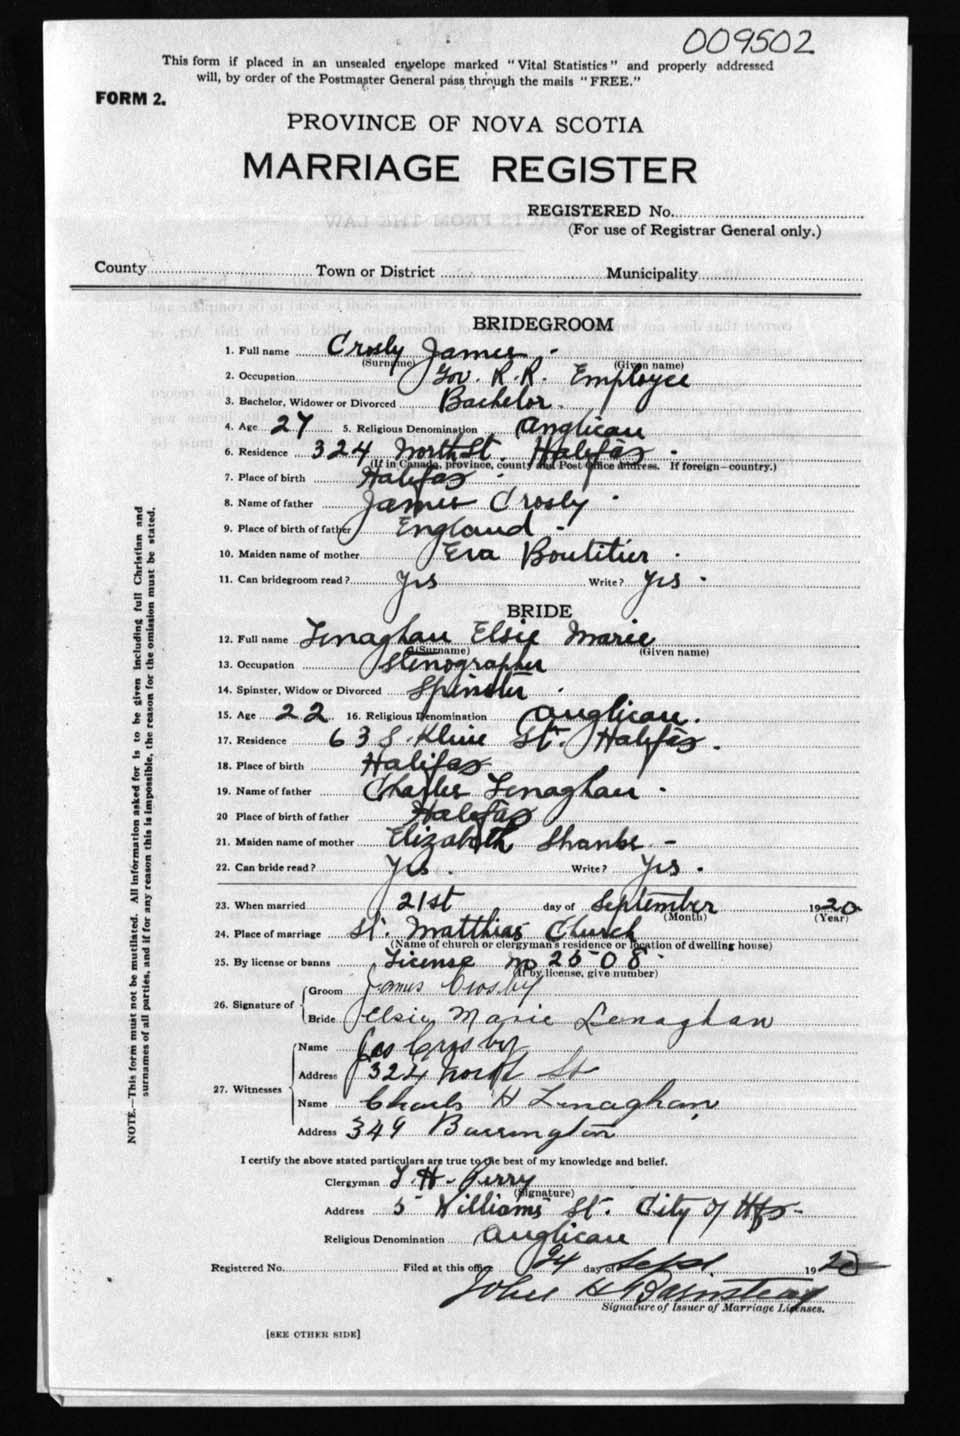 009502
This form if placed in an unsealed envelope marked "Vital Statistics" and properly addressed
will, by order of the Postmaster General pass through the mails "FREE."
FORM 2.
PROVINCE OF NOVA SCOTIA
MARRIAGE REGISTER
REGISTERED No.
(For use of Registrar General only.)
County Town or District Municipality
BRIDEGROOM
1. Full name Crosby James
(Surname) (Given name)
2. Occupation Gov. R.R. Employee
3. Bachelor, Widower or Divorced Bachelor
4. Age 27 5. Religious Denomination Anglican
6. Residence 324 North St. Halifax
(If in Canada, province, county and Post Office address. If foreign—country.)
7. Place of birth Halifax
8. Name of father James Crosby
9. Place of birth of father England
10. Maiden name of mother Eva Boutilier
11. Can bridegroom read? Yes Write? Yes
BRIDE
12. Full name Lenaghan Elsie Marie
(Surname) (Given name)
13. Occupation Stenographer
14. Spinster, Widow or Divorced Spinster
15. Age 22 16. Religious Denomination Anglican.
17. Residence Kline St. Halifax.
18. Place of birth Halifax
19. Name of father Charles Lenaghan
20 Place of birth of father Halifax
21. Maiden name of mother Elizabeth
22. Can bride read? Yes. Write? Yes.
23. When married 21st day of September 1920
(Month) (Year)
24. Place of marriage St. Matthias Church
(Name of church or clergyman's residence or location of dwelling house)
25. By license or banns License No 2508
(If by license, give number)
26. Signature of Groom James Crosby
Bride Elsie Marie Lenaghan
27. Witnesses Name Jas Crosby
Address 324 North St
Name Charles H Lenaghan
Address 349 Barrington
I certify the above stated particulars are true to the best of my knowledge and belief.
Clergyman T. H. Perry
(Signature)
Address 5 Williams St. City of Hfx
Religious Denomination Anglican
Registered No. Filed at this office 24 day of Sept 1920
John H
Signature of Issuer of Marriage Licenses.
[SEE OTHER SIDE]
NOTE.—This form must not be mutilated. All information asked for is to be given including full Christian and
surnames of all parties, and if for any reason this is impossible, the reason for the omission must be stated.